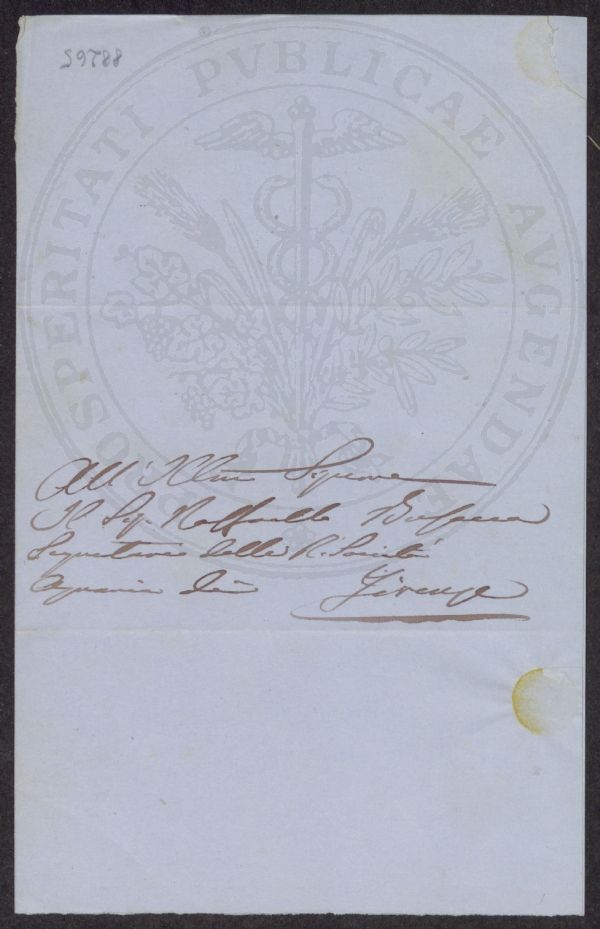 59788
PROSPERITATI PVBLICAE AVGENDAE
All' Illmo Signore
Il Sig. Raffaello
Segretario della R. Società
Agraria di Firenze